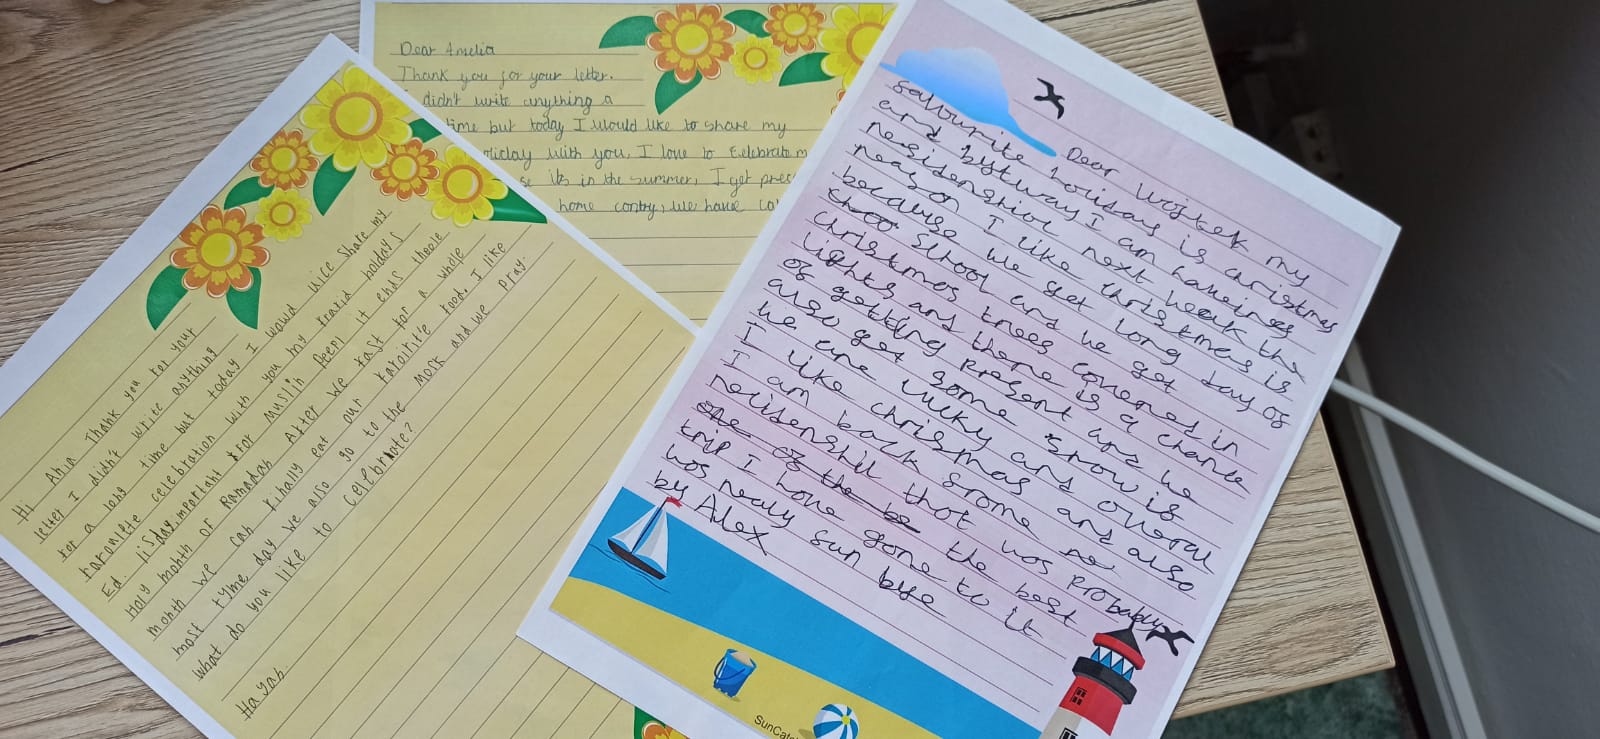 Hi Ahia Thank you for your
letter I didn't write anything
for a long time but today I wowd uice share my
faronite celebration with you my fraxid holdays
Ed. It is day mportaht for muslih peepl it ends thoole
Holy mohth of Ramadah After we fast for a whole
mohth we can fihally eat our faroirit'e food. I like
most tyme day we also go to the mosk and we pray.
What do you like to celebrate?
Hayah.
Dear Amelia
Thank you for your letter.
didn't write anything a
time but today I would like to share my
oliday with you, I love to Celebrate m
se its in the summer, I get pres
home contry, we have
Dear Wojtek my
favourite holiday is christmas
and bystway I am haveing
residenshiol next week the
reason I like christmas is
because we get long day of
school and we get
christmas trees covered in
lights and there is a chance
of getting present and we
also get some snow is
we are lucky and overal
I like chrismas and also
I am back from
residenshil that was probably
one of the be the best
trip I have gone to it
was realy fun bye
by Alex
SunCatc